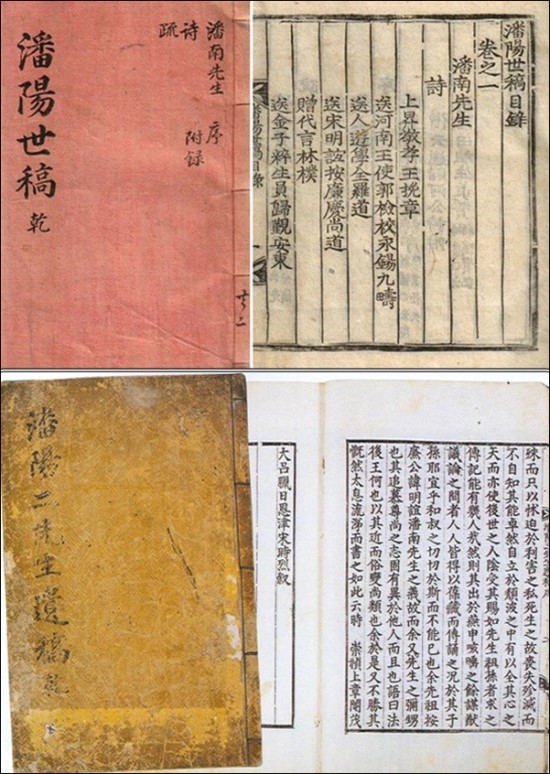 潘南先生 序
詩 附錄
疏
潘陽世稿 乾
共二
潘陽世稿目錄
卷之一
潘南先生
詩
上昇敬孝王挽章
送河南王使郭檢校永錫九疇
送人遊學全羅道
送宋明誼按廉慶尚道
贈代言林樸
送金子粹生員歸覲安東
潘陽二先生遺稿 乾
殊而只以怵迫於利害之私死生之故喪失殄滅而
不自知其能卓然自立於頹波之中有以全其心之
天而亦使後世之人陰受其賜如先生祖孫者求之
傳記能有幾人哉然則其出於燕申咳唾之餘謨猷
議論之間者人人皆得以葆藏而傳誦之況於其子
孫耶宜乎和叔之切切於斯而不能已也余先祖按
廉公諱明誼潘南先生之義故而余又先生之彌甥
也其追慕尊尚之志固有異於他人而且也語曰法
後王何也以其近而俗變尚類也余於是又不勝其
慨然太息流涕而書之如此云時 崇禎上章閹茂
大呂臘日恩津宋時烈敍